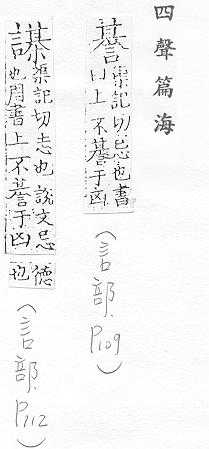 四聲篇海
諅渠記切忌也書
曰上不諅于凶
(言部.P109)
諅渠記切志也說文忌
也周書上不諅于凶
德也
(言部.P112)